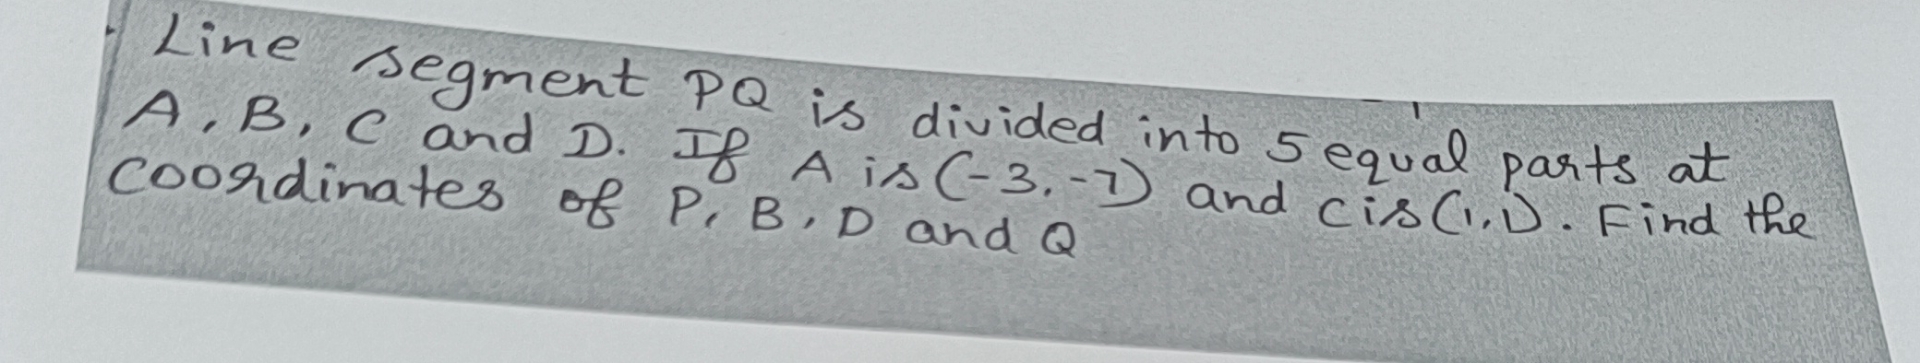 Line segment PQ is divided into 5 equal parts at
A, B, C and D. If A is (-3, -7) and C is (1, 1). Find the
coordinates of P, B, D and Q